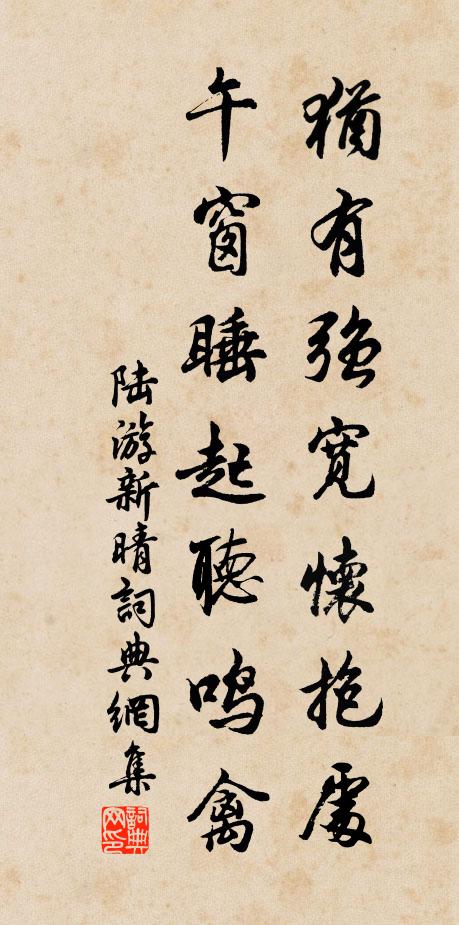 猶有強寬懷抱處
午窗睡起聽鳴禽
陸游新晴詞典網集
詞典網印